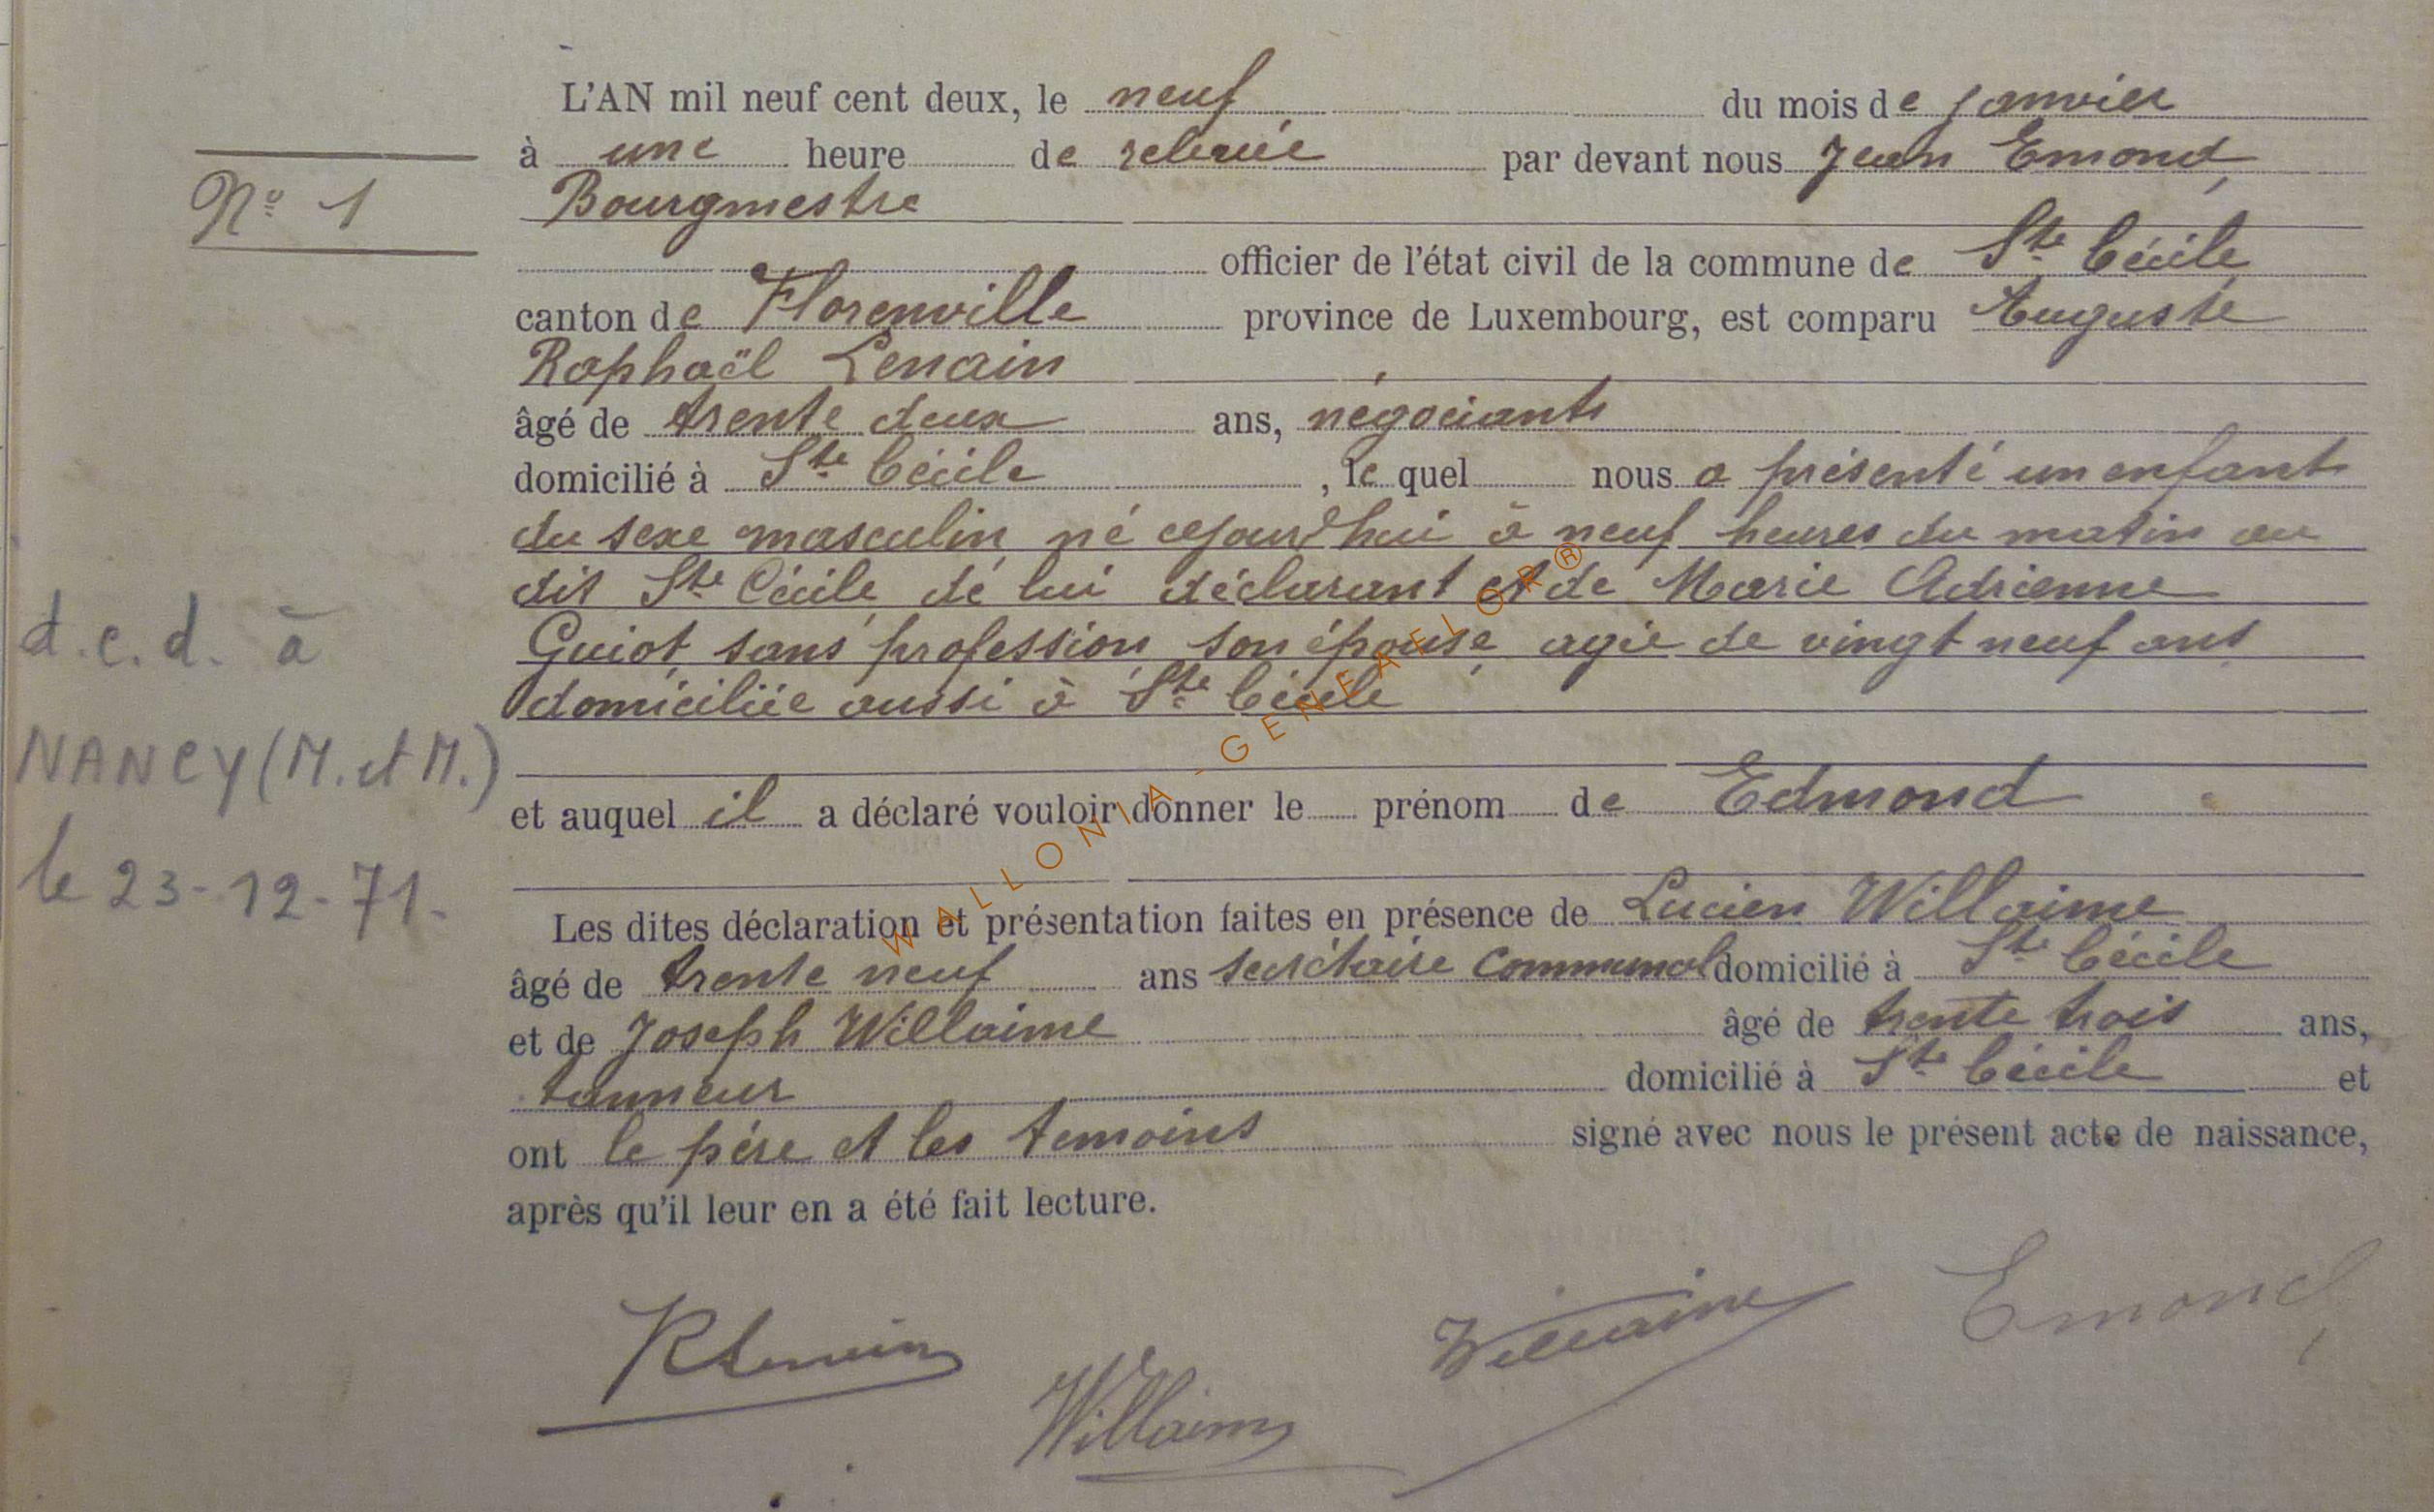 L'AN mil neuf cent deux, le neuf du mois de janvier
à une heure de relevée par devant nous Jean Emond,
Bourgmestre
officier de l'état civil de la commune de Ste Cécile,
canton de Florenville province de Luxembourg, est comparu Auguste
Raphaël Lenain
âgé de trente deux ans, négociant
domicilié à Ste Cécile, le quel nous a présenté un enfant
du sexe masculin, né cejourd'hui à neuf heures du matin au
dit Ste Cécile, de lui déclarant et de Marie Adrienne
Guiot, sans profession, son épouse, agée de vingt neuf ans,
domiciliée aussi à Ste Cécile
et auquel il a déclaré vouloir donner le prénom de Edmond
Les dites déclaration et présentation faites en présence de Lucien Willaime
âgé de trente neuf ans secrétaire communal domicilié à Ste Cécile
et de Joseph Willaime âgé de trente trois ans,
tanneur domicilié à Ste Cécile et
ont le père et les temoins signé avec nous le présent acte de naissance,
après qu'il leur en a été fait lecture.
RLenain
Willaime
Willaime
Emond,
No 1
d.c.d. à
NANCY (M. et M.)
le 23-12-71.
WALLONIA-GENEAFLOR®